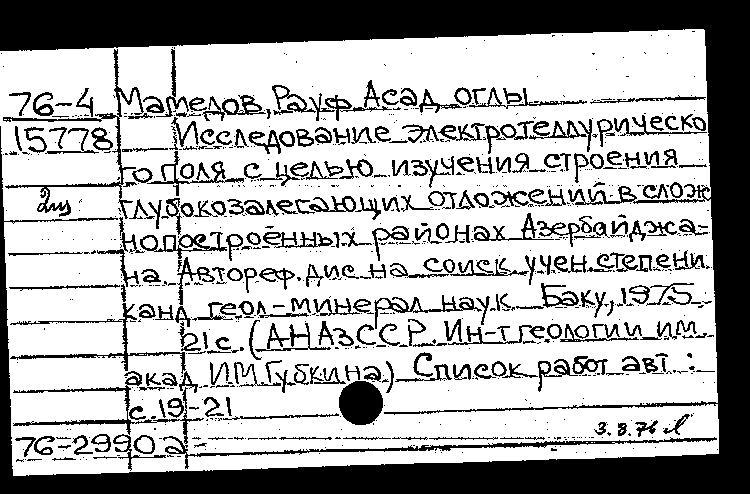 76-4 Мамедов, Рауф Асад оглы
15778 Исследование электротеллурическо
го поля с целью изучения строения
глубокозалегающих отложений в слож
нопостроенных районах Азербайджа=
на. Автореф. дис на соиск учен. степени
канд геол-минерал наук Баку, 1975
21 с. (АН АзССР. Ин-т геологии им.
акад И.М.Губкина) Список работ авт :
с. 19-21
3.8.76
76-2990а